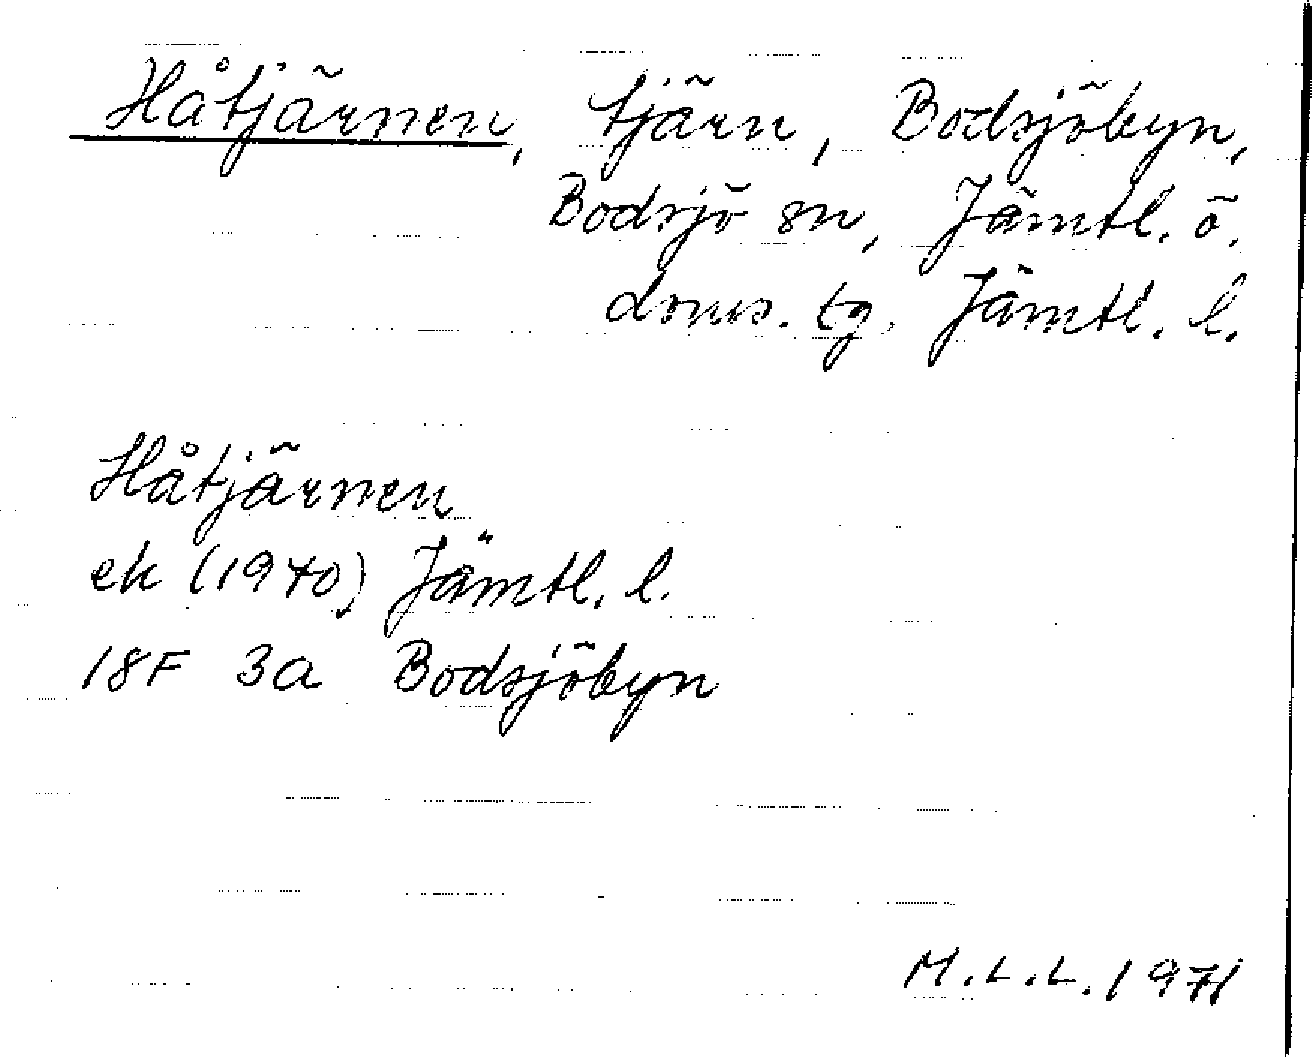 Håtjärnen, tjärn, Bodsjöbyn,
Bodsjö sn, Jämtl. ö.
doms. tg. Jämtl. l.
Håtjärnen
ek (1970) Jämtl. l.
18F 3a Bodsjöbyn
M.L.L. 1971